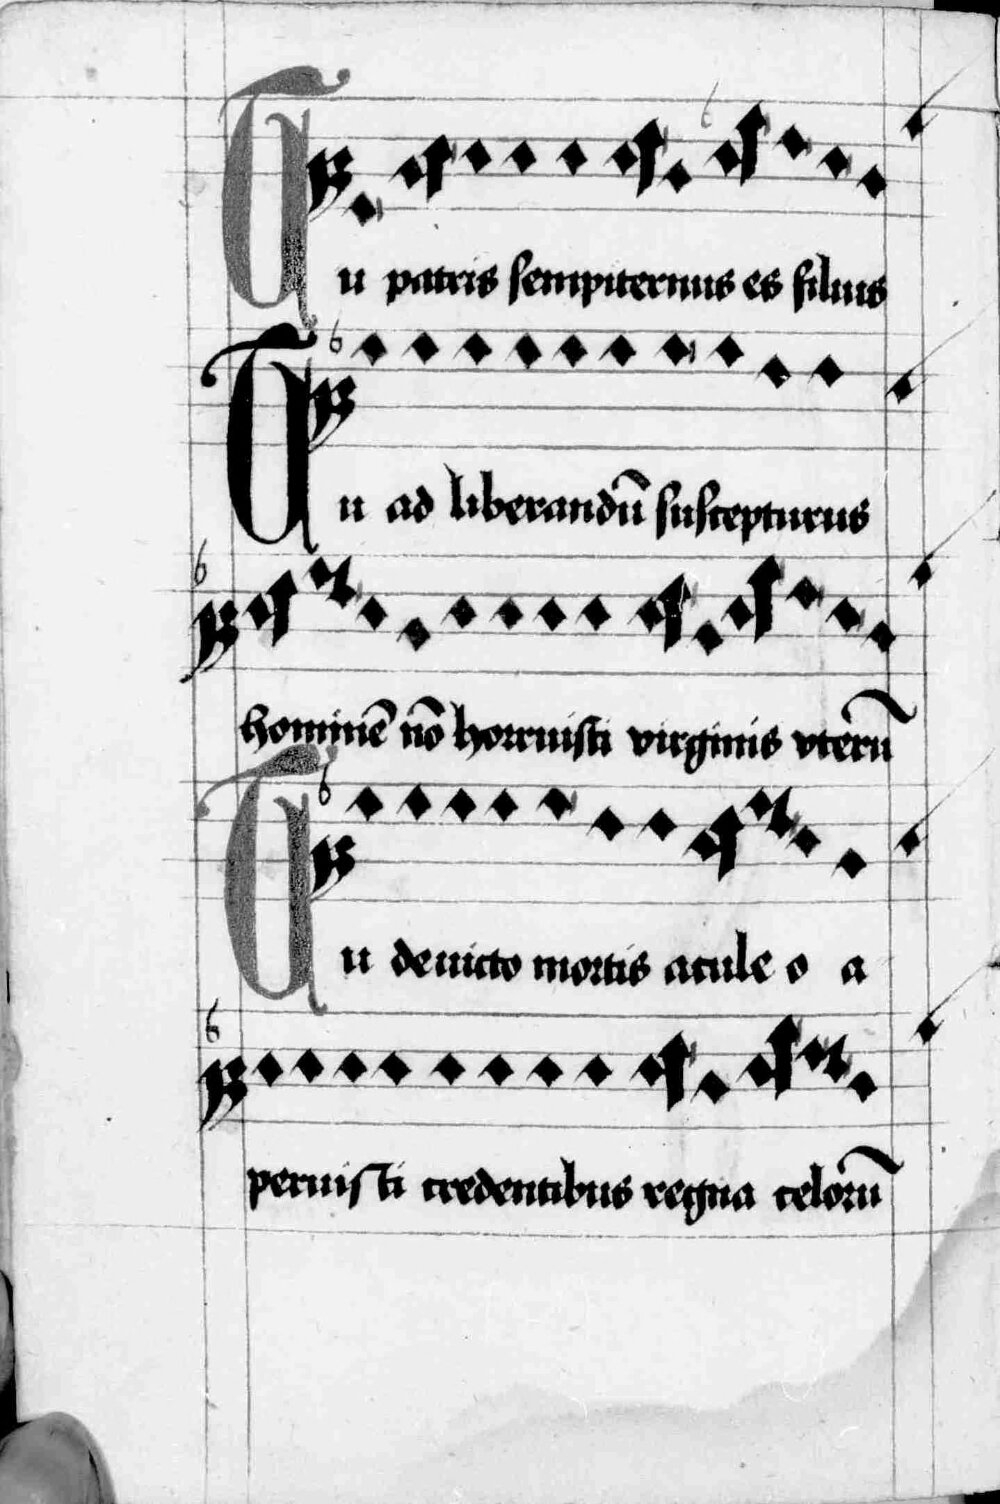 Tu patris sempiternus es filius
Tu ad liberandū suscepturus
hominē nō horruisti virginis vterū
Tu deuicto mortis acule o a
peruisti credentibus regna celorū